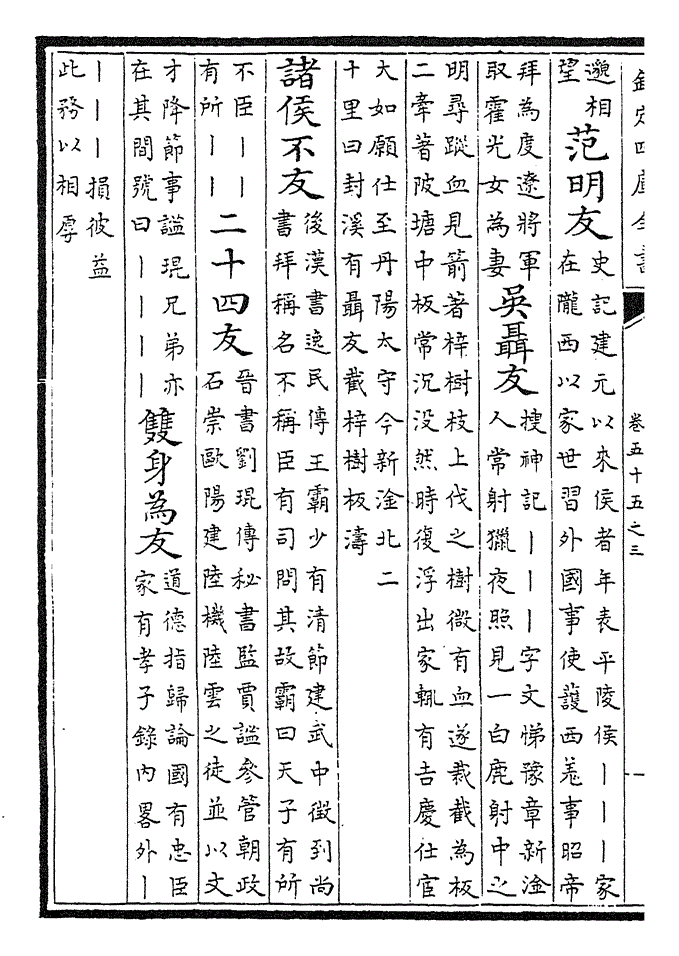 欽定四庫全書 卷五十五之三
邈相
望
范明友
史記建元以來侯者年表平陵侯丨丨丨家
在隴西以家世習外國事使護西羌事昭帝
拜為度遼將軍
取霍光女為妻
吳聶友
搜神記丨丨丨字文悌豫章新淦
人常射獵夜照見一白鹿射中之
明尋蹤血見箭著梓樹枝上伐之樹微有血遂裁截為板
二牽著陂塘中板常沉没然時復浮出家輒有吉慶仕宦
大如願仕至丹陽太守今新淦北二
十里曰封溪有聶友截梓樹板濤
諸侯不友
後漢書逸民傳王霸少有清節建武中徵到尚
書拜稱名不稱臣有司問其故霸曰天子有所
不臣丨丨
有所丨丨
二十四友
晉書劉琨傳秘書監賈謐參管朝政
石崇歐陽建陸機陸雲之徒並以文
才降節事謐琨兄弟亦
在其間號曰丨丨丨丨
雙身為友
道德指歸論國有忠臣
家有孝子錄內畧外丨
丨丨丨損彼益
此務以相厚